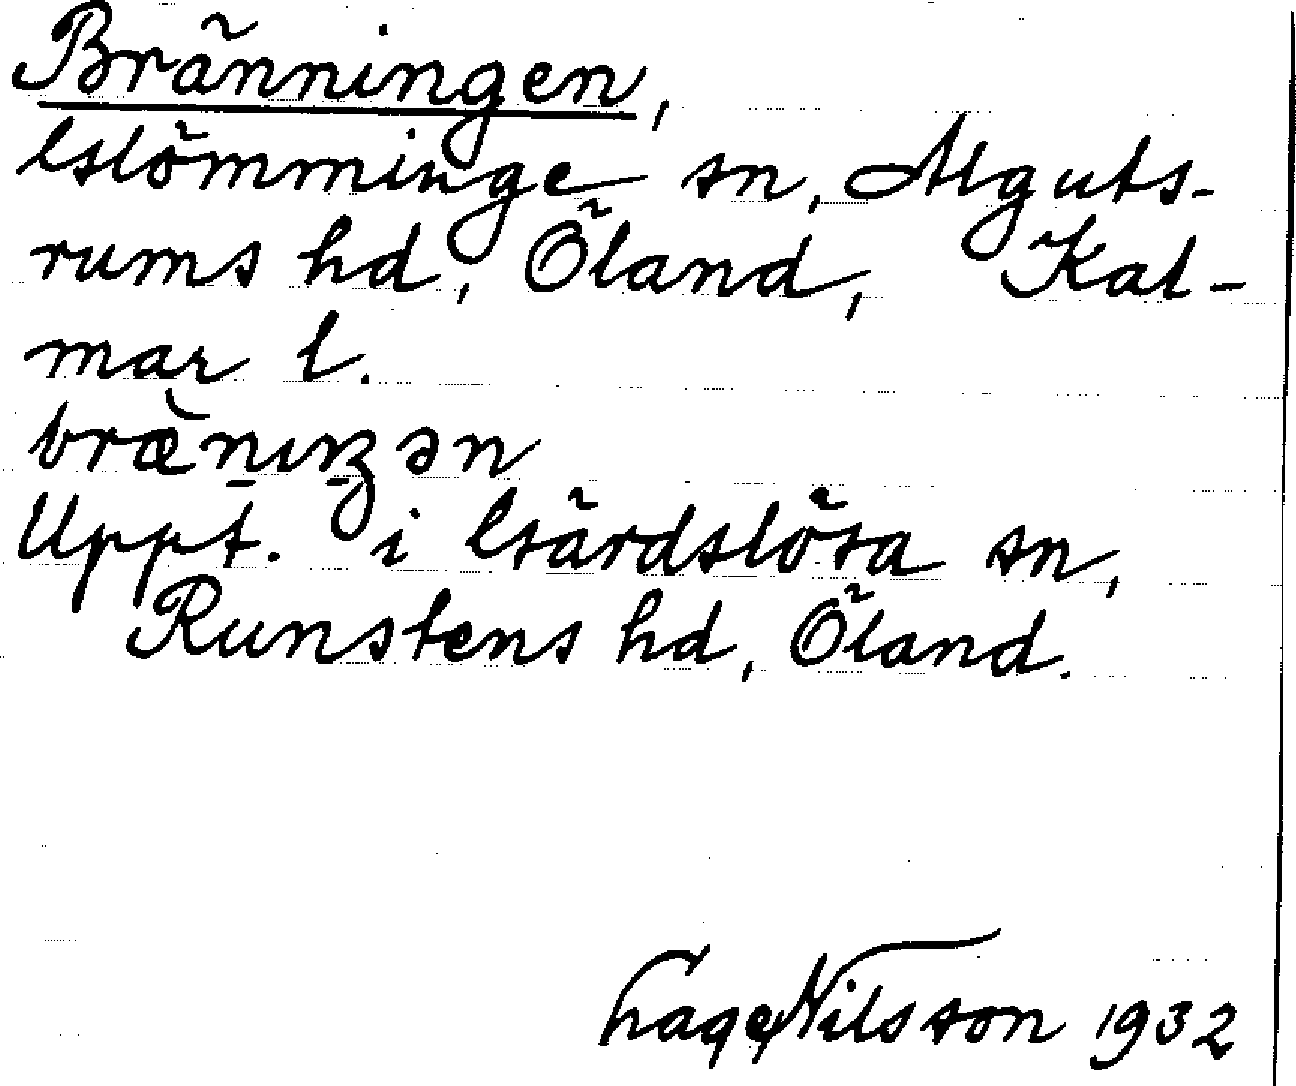 Bränningen,
Glömminge sn, Alguts-
rums hd, Öland, Kal-
mar l.
bræ̀nıŋən
Uppt. i Gärdslösa sn,
Runstens hd, Öland.
Nilsson 1932